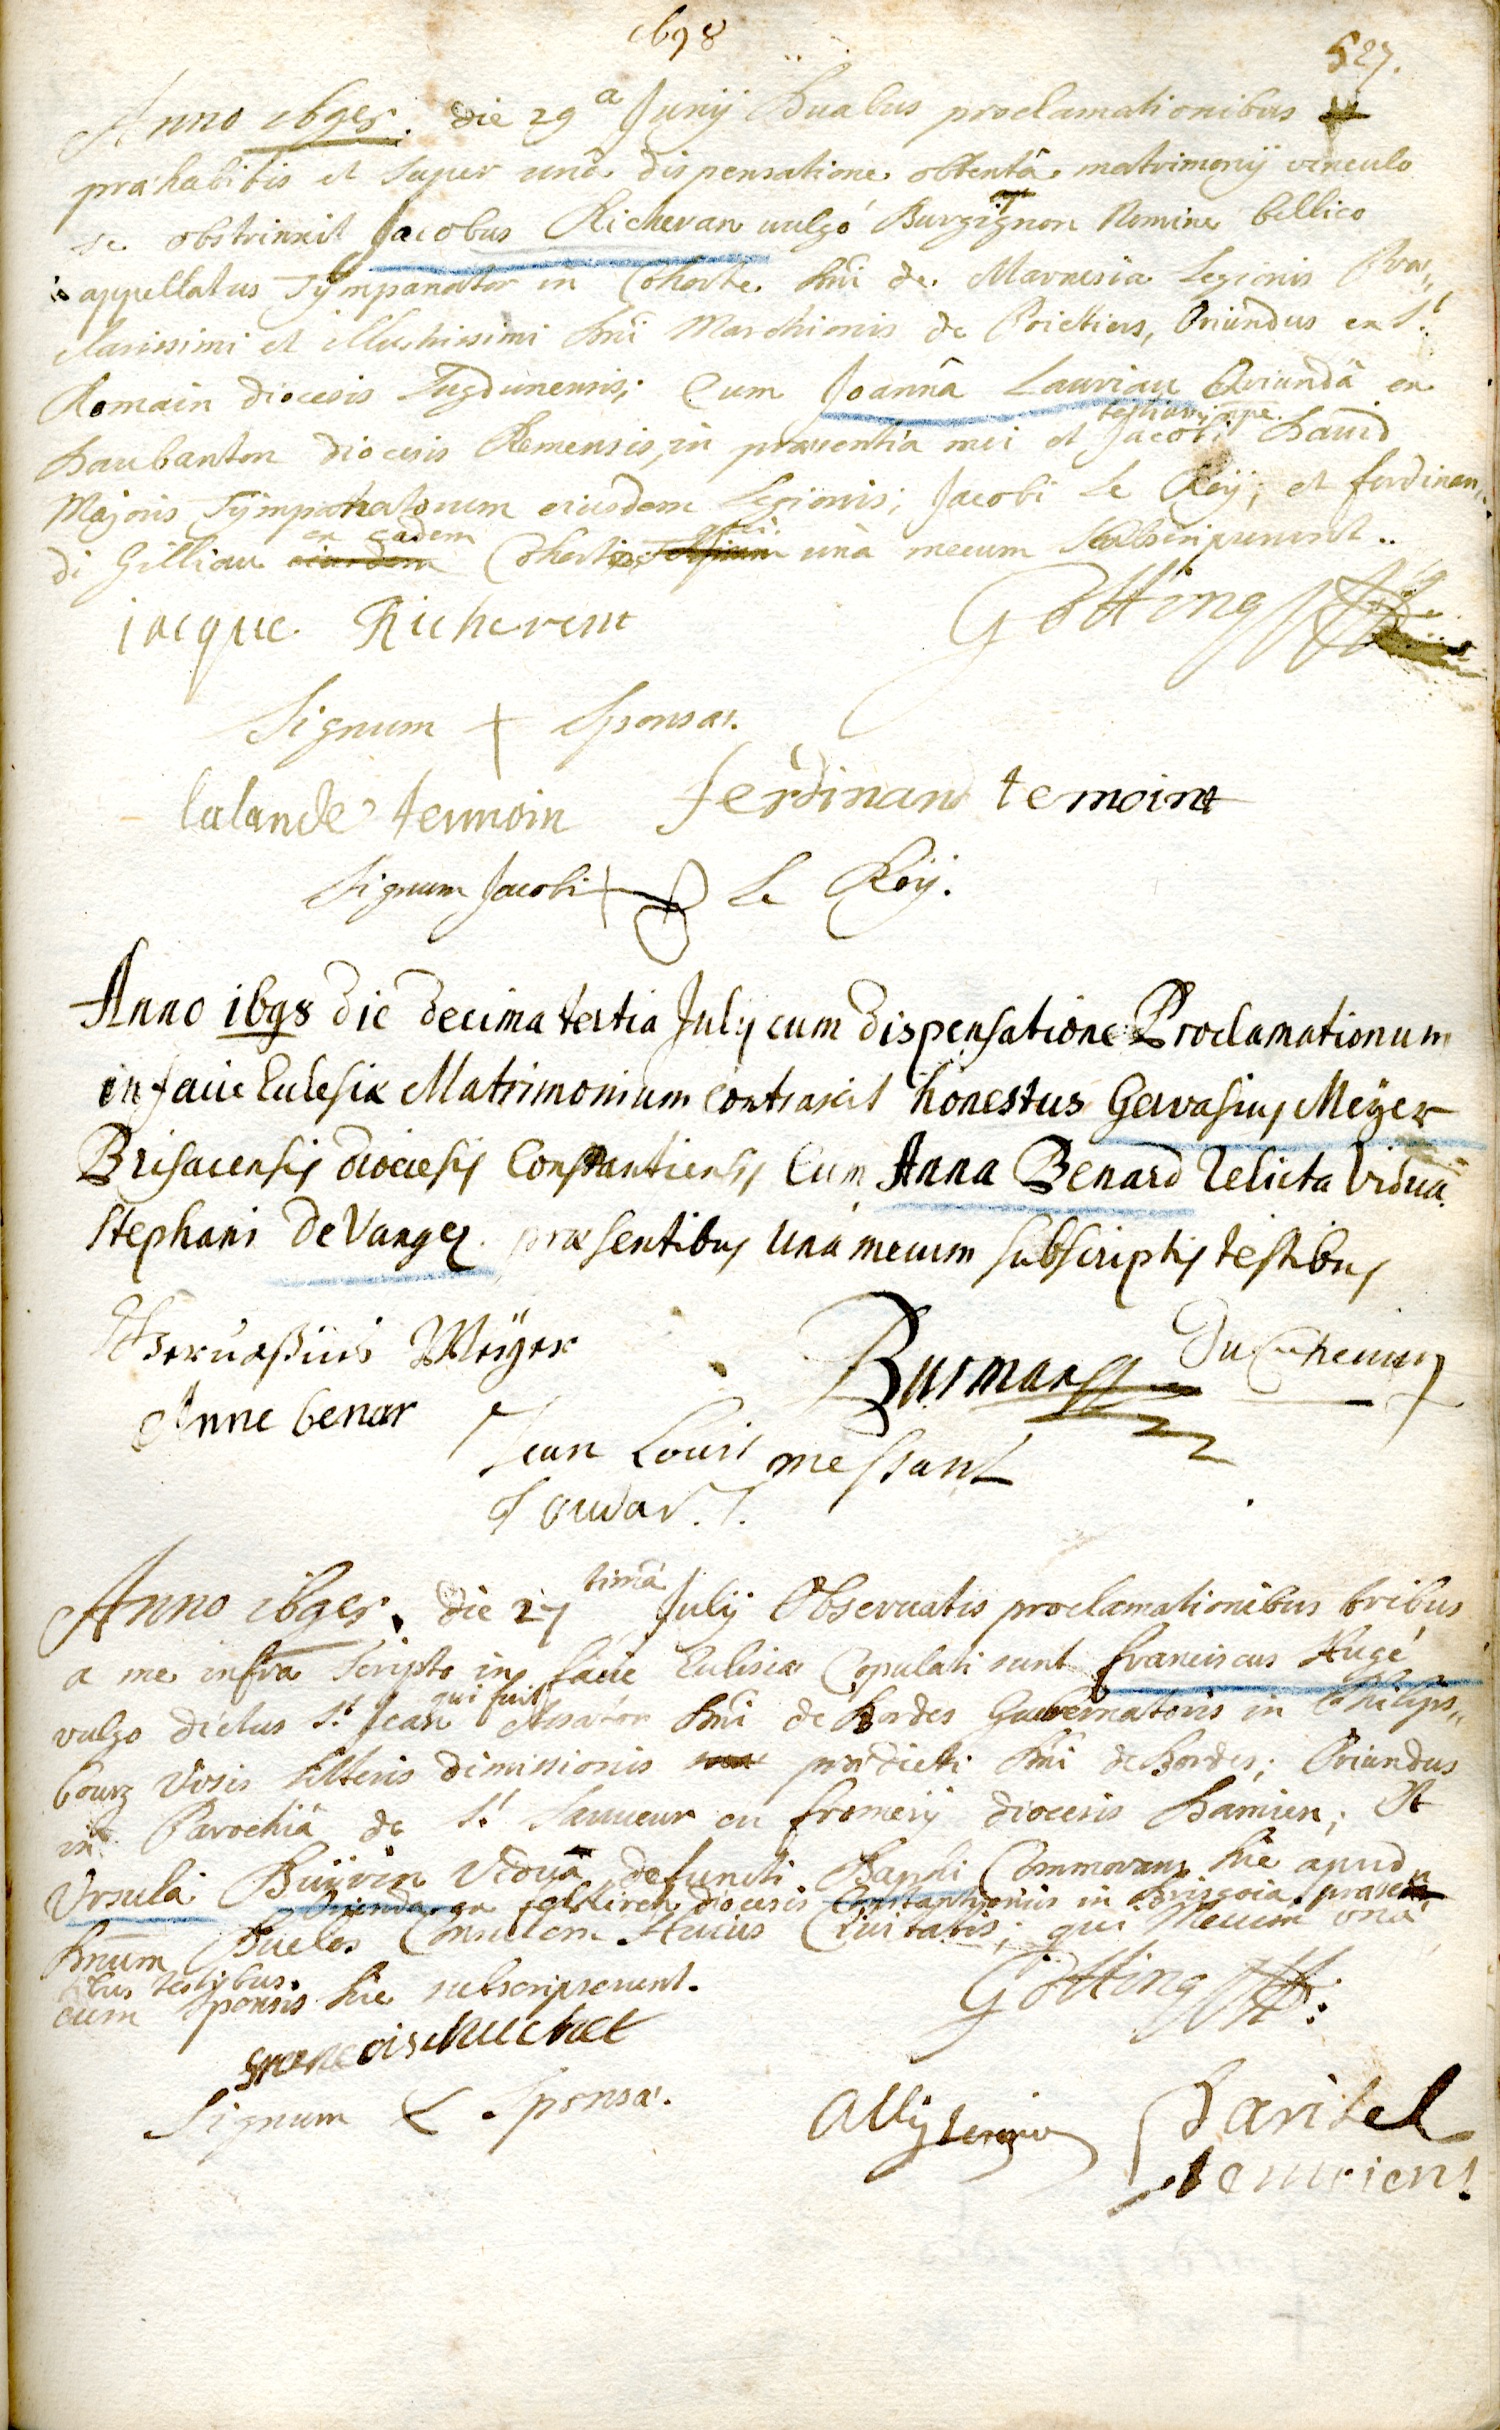 1698
527.
Anno 1698. die 29a Junij Duabus proclamationibus
præhabitis et super unâ dispensatione obtentâ matrimonij vinculo
se obstrinxit Jacobus Richevan vulgó Burgignon Nomine bellico
appellatus Tÿmpanator in Cohorte Dni de Marnesia Legionis Præ„
clarissimi et illustrissimi Dni Marchionis de Poictiers, Oriundus ex St
Romain diocesis Lugdunensis; Cum Joannâ Lauriau Oriundâ ex
Daubanton diocesis Remensis, in præsentia mei et Jacobi David
Majoris Tÿmpanatorum eiusdem Legionis; Jacobi Le Roÿ; et ferdinan„
di Gilliau ex eadem Cohorte, unà mecum subscripserunt..
jacque Richerent
Götting
Signum + Sponsæ.
lalande temmoin ferdinand temoint
Signum Jacobi + Le Roÿ.
Anno 1698 die decima tertia Julij cum dispensatione Proclamationum
in facie Eclesiæ Matrimonium contraxit honestus Gervasius Meÿer
Brisacensis diocesis Constantiensis Cum Anna Benard relicta vidua
Stephani de Vange præsentibus una mecum subscriptis testibus
Gervasius Meÿer
Burman
Du Chemin
Anne benar
Jean Louis messant
Anno 1698. die 27 timâ Julij Observatis proclamationibus tribus
a me infra scripto in facie Eclesiæ Copulati sunt franciscus Hugé
vulgo dictus St Jean qui fuit Dni de Bordes Gubernatoris in Philips„
bourg visis litteris dimissionis prædicti Dni de Bordes; Oriundus
in Parochiâ de St Sauveur en fromerÿ diocesis Damien; Et
Ursula Buÿrin Viduâ defuncti Commorans hic apud
Oriunda ex feltkirch diocesis in Brisgoia. præsen
Dnum Bueles Consulem Huius Civitatis; qui Mecum unâ
tibus testibus.
cum Sponsis hic subscripserunt.
Götting
Signum + Sponsæ.
Baritel